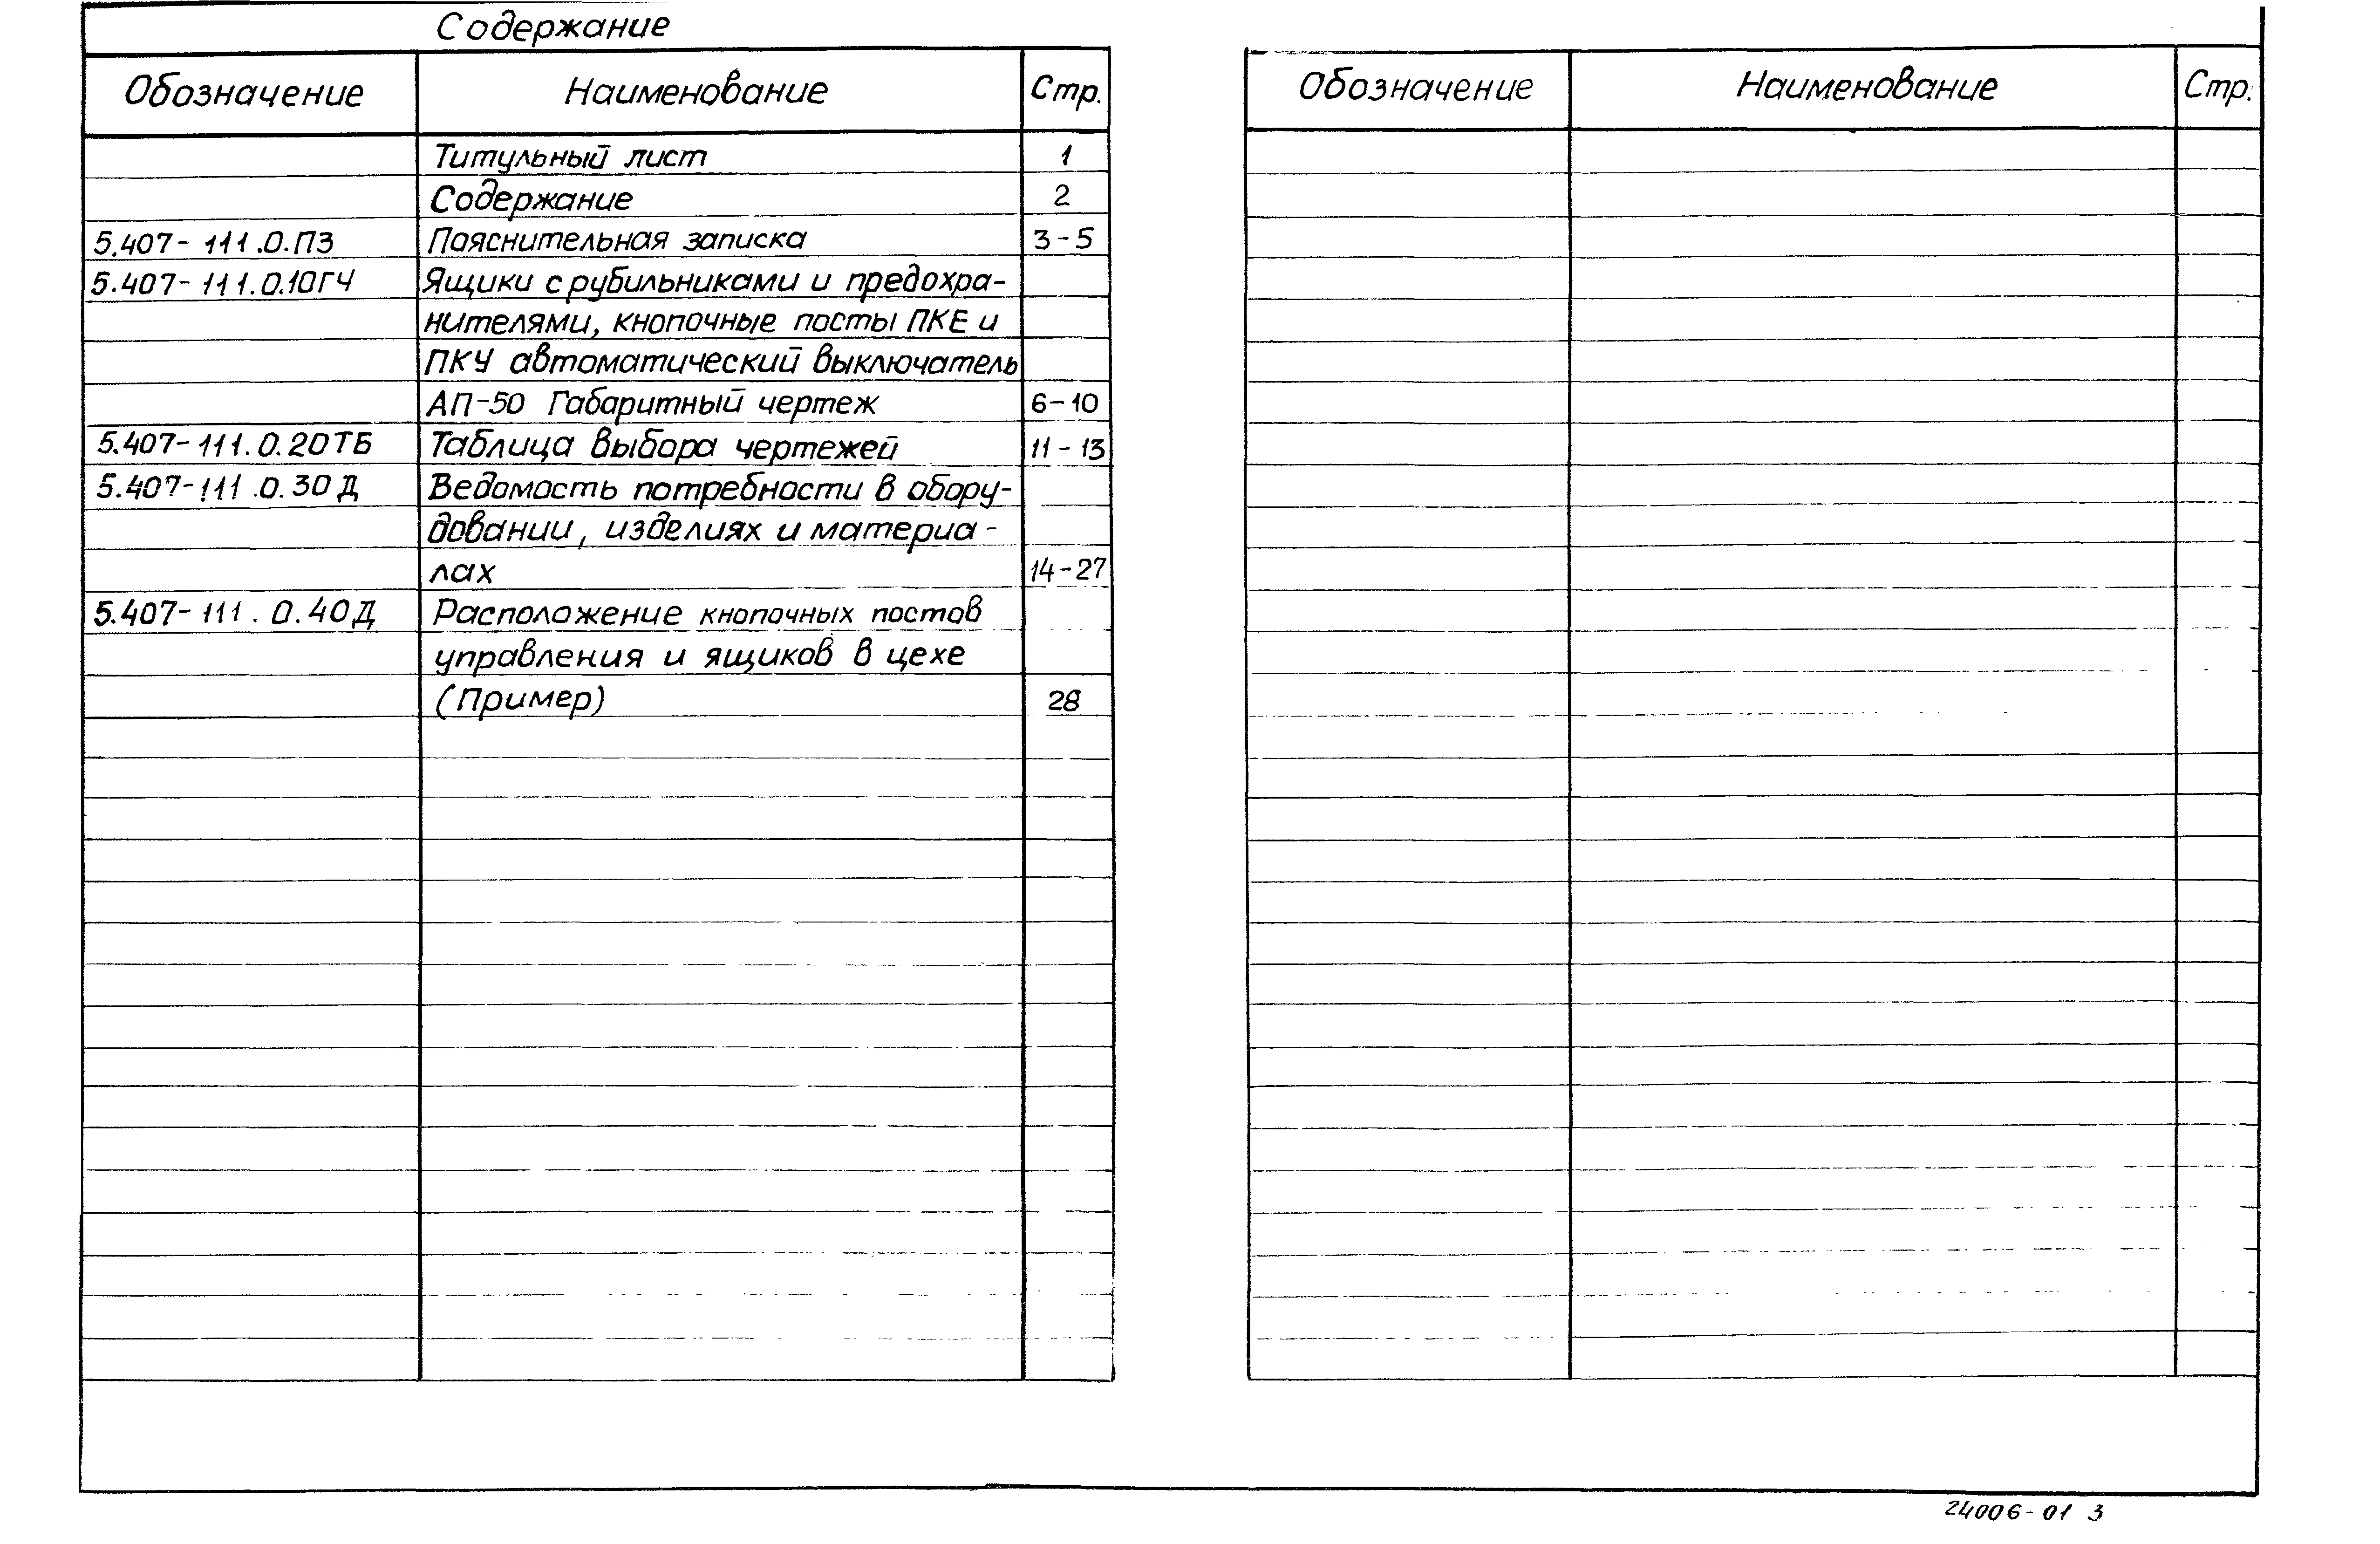 Содержание
Обозначение Наименование Стр.
Титульный лист 1
Содержание 2
5.407-111.0.ПЗ Пояснительная записка 3-5
5.407-111.0.10ГЧ Ящики с рубильниками и предохра-
нителями, кнопочные посты ПКЕ и
ПКУ автоматический выключатель
АП-50 Габаритный чертеж 6-10
5.407-111.0.20ТБ Таблица выбора чертежей 11-13
5.407-111.0.30Д Ведомость потребности в обору-
довании, изделиях и материа-
лах 14-27
5.407-111.0.40Д Расположение кнопочных постов
управления и ящиков в цехе
(Пример) 28
Обозначение Наименование Стр.
24006-01 3